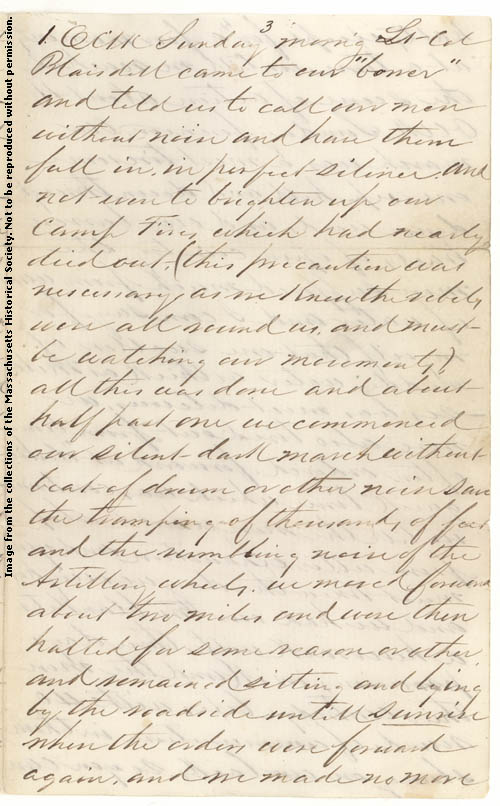 Image from the collections of the Massachusetts Historical Society. Not to be reproduced without permission.
3
1. OClk Sunday morng Lt-Col
Blaisdell came to our "bower"
and told us to call our men
without noise and have them
fall in, in perfect silence, and
not even to brighten up our
Camp Fires, which had nearly
died out, (this precaution was
nescessary, as we Knew the rebels
were all round us, and must-
be watching our movements,)
all this was done and about-
half past one we commenced
our silent-dark march without-
beat-of drum or other noise save
the tramping of thousands of feet
and the rumbling noise of the
Artillery wheels. we moved forward
about two miles and were then
halted for some reason or other
and remained sitting and lying
by the roadside untill sunrise
when the orders were forward
again, and we made no more